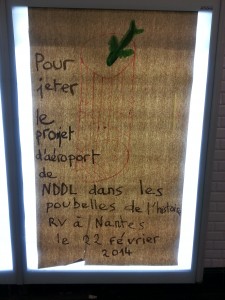 Pour
jeter
le
projet
d'aéroport
de
NDDL dans les
poubelles de l'histoire
RV à Nantes
le 22 Février
2014